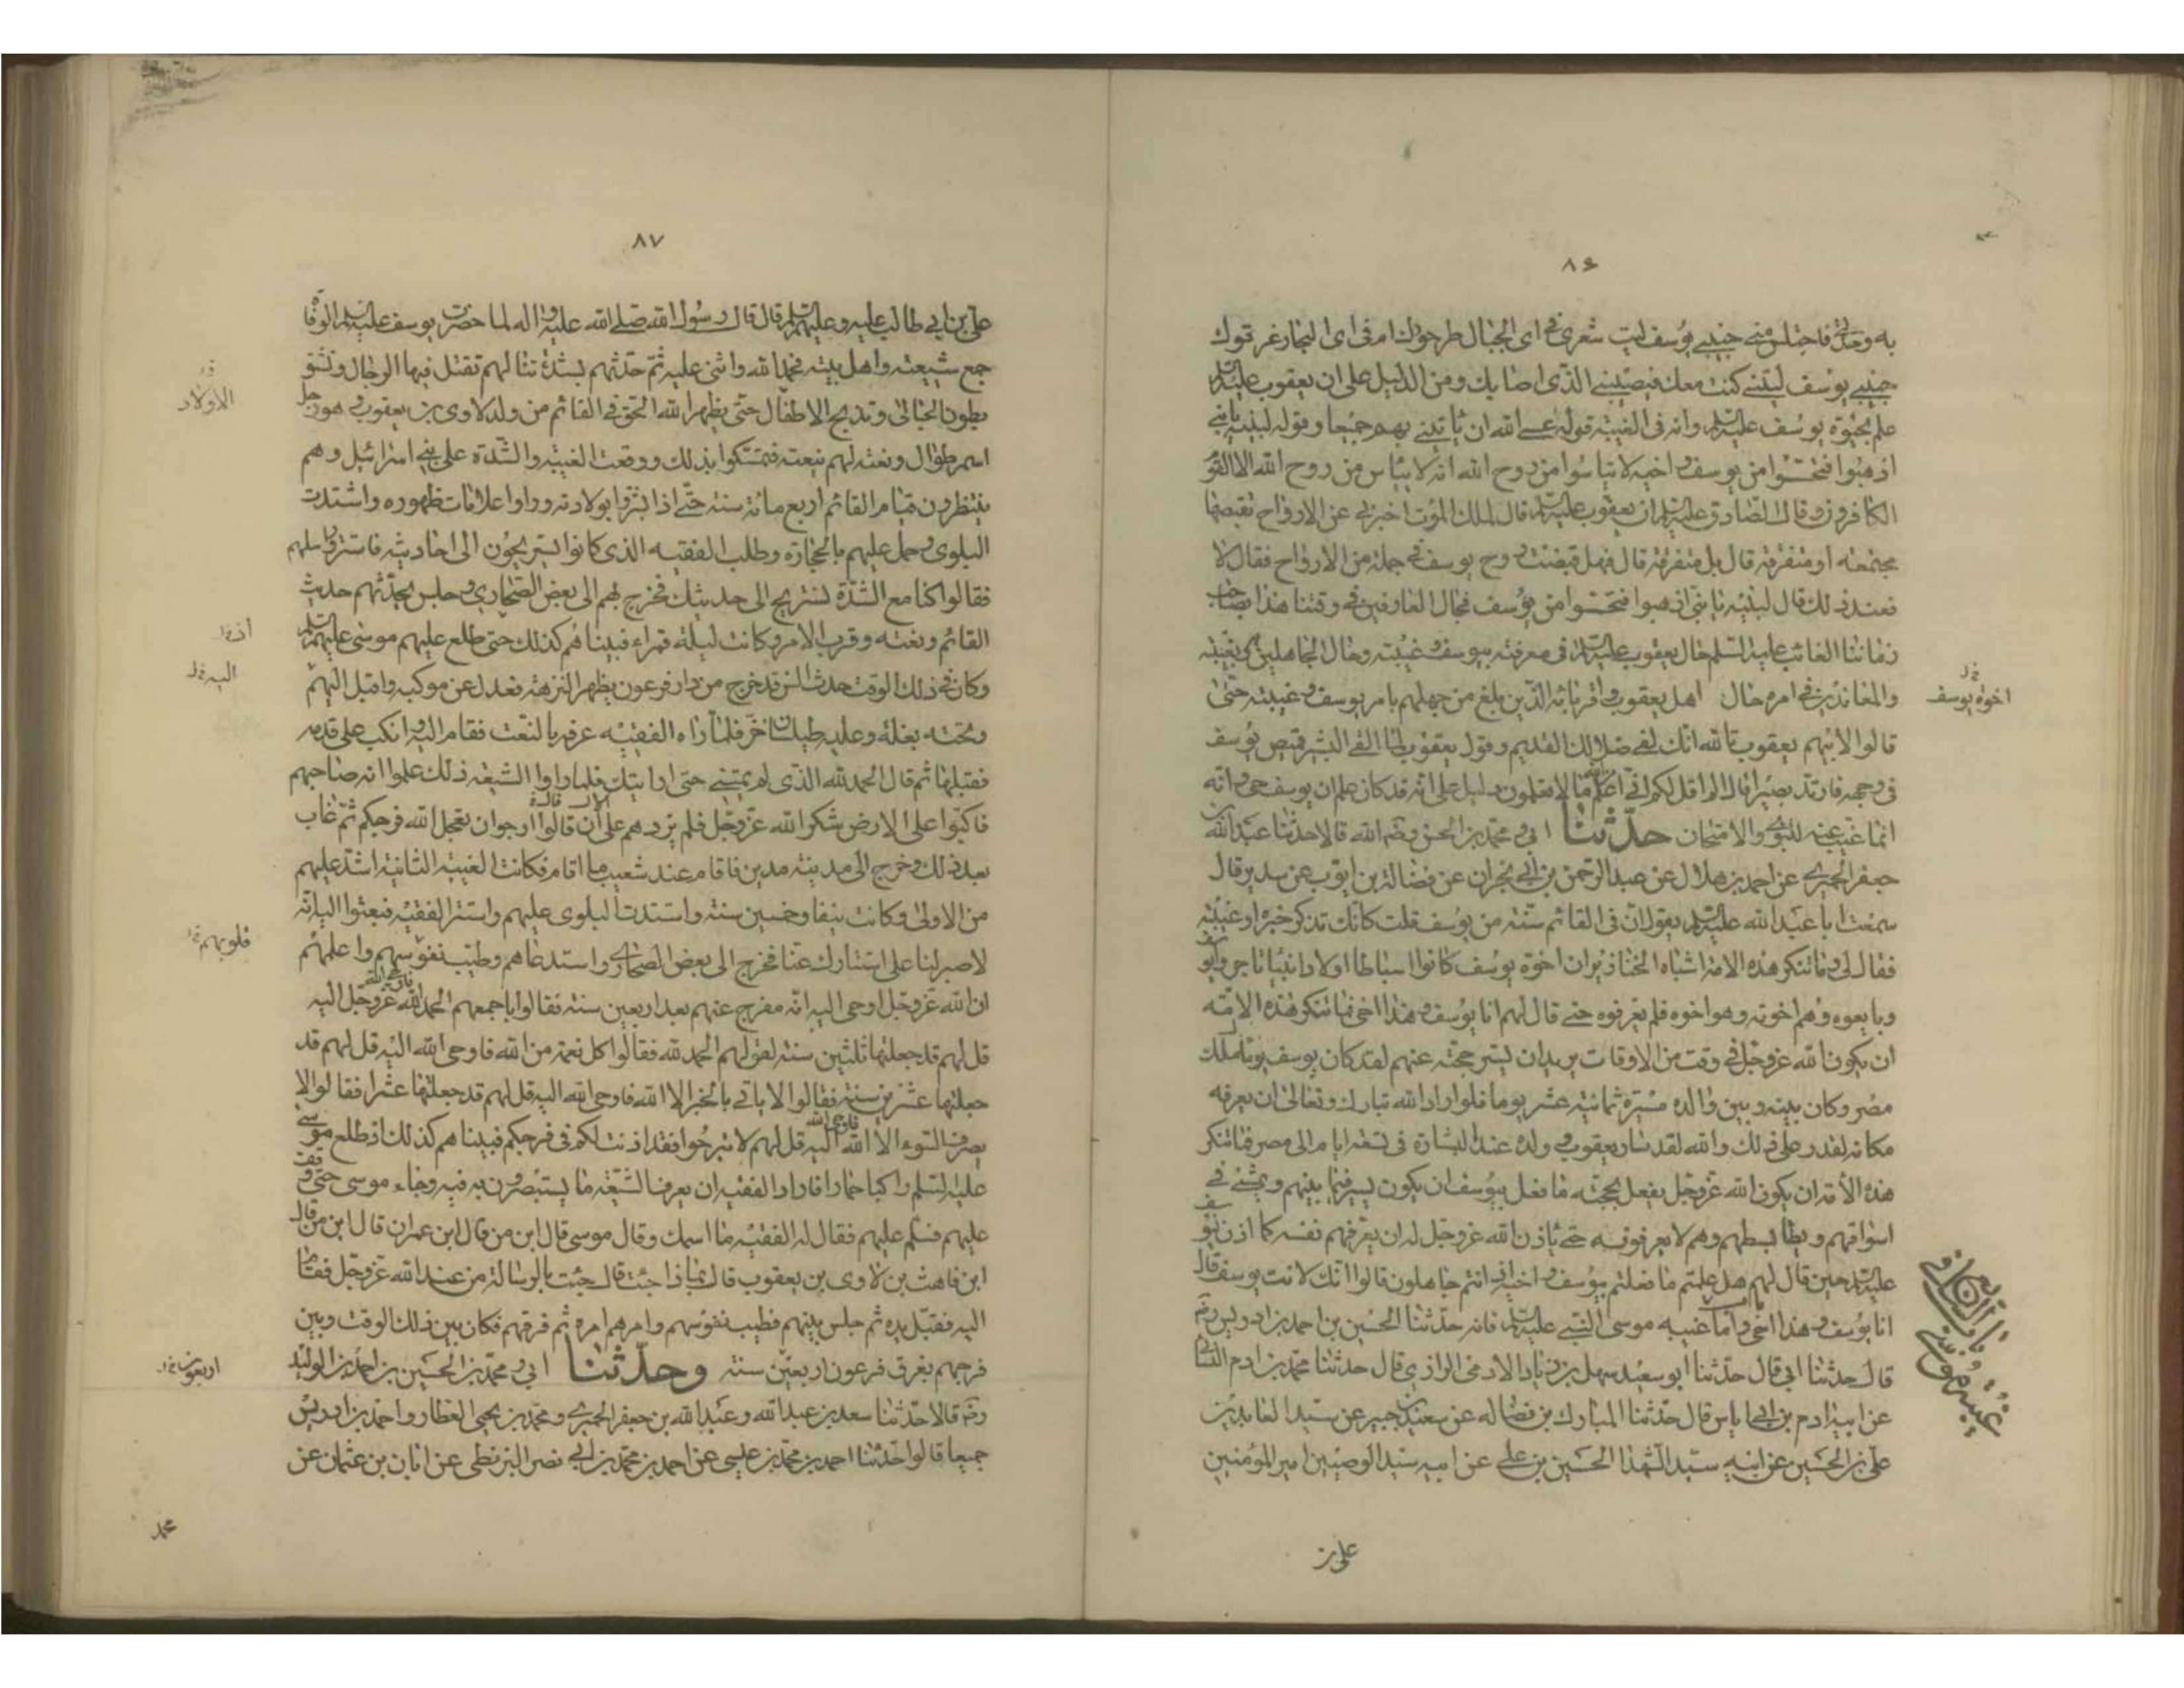 ٨۶
به وحالت فاختلس مني حبيبي يوسف ليت شعري في اي الجبال طرحوك ام في اي البحار غرقوك
حبيبي يوسف ليتني كنت معك فيصيبني الذي اصابك ومن الدليل على ان يعقوب عليه السلم
علم بحيوة يوسف عليه السلم وانه في الغيبة قوله عسى الله ان ياتيني بهم جميعا وقوله لبنيه يا بني
اذهبوا فتحسسوا من يوسف واخيه ولا تياسوا من روح الله انه لا يياس من روح الله الا القوم
الكافرون وقال الصادق عليه السلم ان يعقوب عليه السلم قال لملك الموت اخبرني عن الارواح تقبضها
مجتمعة او متفرقة قال بل متفرقة قال فهل قبضت روح يوسف في جملة من الارواح فقال لا
فعند ذلك قال لبنيه يا بني اذهبوا فتحسسوا من يوسف فحال العارفين في وقتنا هذا بصاحب
زماننا الغائب عليه السلم حال يعقوب عليه السلم في معرفته بيوسف وغيبته وحال الجاهلين به وبغيبته
والمعاندين في امره حال اهل يعقوب واقربائه الذين بلغ من جهلهم بامر يوسف وغيبته حتى
اخوة يوسف
قالوا لابيهم يعقوب تالله انك لفي ضلالك القديم وقول يعقوب لما القى البشير قميص يوسف
في وجهه فارتد بصيرا قال الم اقل لكم اني اعلم من الله ما لا تعلمون دليل على انه قد كان علم ان يوسف حي وانه
انما غيب عنه للبلوى والامتحان حدثنا ابي ومحمد بن الحسن رضي الله قالا حدثنا عبد الله بن
جعفر الحميري عن احمد بن هلال عن عبد الرحمن بن ابي نجران عن فضالة بن ايوب عن سدير قال
سمعت ابا عبد الله عليه السلم يقول ان في القائم سنة من يوسف قلت كانك تذكر خبره او غيبته
فقال لي وما تنكر هذه الامة اشباه الخنازير ان اخوة يوسف كانوا اسباطا اولاد انبيا تاجروا يوسف
وبايعوه وهم اخوته وهو اخوهم فلم يعرفوه حتى قال لهم انا يوسف وهذا اخي فما تنكر هذه الامة
ان يكون الله عز وجل في وقت من الاوقات يريد ان يستر حجته عنهم لقد كان يوسف يوما ملك
مصر وكان بينه وبين والده مسيرة ثمانية عشر يوما فلو اراد الله تبارك وتعالى ان يعرفه
مكانه لقدر على ذلك والله لقد سار يعقوب وولده عند البشارة في تسعة ايام الى مصر فما تنكر
هذه الامة ان يكون الله عز وجل يفعل بحجته ما فعل بيوسف ان يكون يسير فيما بينهم ويمشي في
اسواقهم ويطا بسطهم وهم لا يعرفونه حتى ياذن الله عز وجل له ان يعرفهم نفسه كما اذن ليوسف
عليه السلم حين قال لهم هل علمتم ما فعلتم بيوسف واخيه اذ انتم جاهلون قالوا ائنك لانت يوسف قال
انا يوسف وهذا اخي واما غيبه موسى النبي عليه السلم فانه حدثنا الحسين بن احمد بن ادريس رضه
قال حدثنا ابي قال حدثنا ابو سعيد سهل بن زياد الادمي الرازي قال حدثنا محمد بن ادم النسائي
عن ابيه ادم بن ابي اياس قال حدثنا المبارك بن فضاله عن سعيد بن جبير عن سيد العابدين
علي بن الحسين عن ابيه سيد الشهدا الحسين بن علي عن ابيه سيد الوصيين امير المؤمنين
علي بن
٨٧
علي بن ابي طالب عليه وعليهم السلم قال قال رسول الله صلى الله عليه واله لما حضرت يوسف عليه السلم الوفاة
جمع شيعته واهل بيته فحمد الله واثنى عليه ثم حدثهم بشدة تنالهم تقتل فيها الرجال وتشق
بطون الحبالى وتذبح الاطفال حتى يظهر الله الحق في القائم من ولد لاوى بن يعقوب وهو رجل
الاولاد
اسمر طوال ونعته لهم بنعته فتمسكوا بذلك ووقعت الغيبة والشدة على بني اسرائيل وهم
ينتظرون قيام القائم اربع مائة سنة حتى اذا بشروا بولادته وراوا علامات ظهوره واشتدت
البلوى وحمل عليهم بالحجارة وطلب الفقيه الذي كانوا يستريحون الى احاديثه فاستتر وراسلهم
فقالوا كنا مع الشدة نستريح الى حديثك فخرج بهم الى بعض الصحاري وجلس يحدثهم حديث
القائم ونعته وقرب الامر وكانت ليلة قمراء فبينا هم كذلك حتى طلع عليهم موسى عليه السلم
وكان في ذلك الوقت حدث السن قد خرج من دار فرعون يظهر النزهة فعدل عن موكبه واقبل اليهم
اليه
وتحته بغلة وعليه طيلسان خز فلما راه الفقيه عرفه بالنعت فقام اليه وانكب على قدمه
فقبلها ثم قال الحمد لله الذي لم يمتني حتى ارانيك فلما راوا الشيعة ذلك علموا انه صاحبهم
فاكبوا على الارض شكرا لله عز وجل فلم يزدهم على ان قالوا ارجو ان يعجل الله فرجكم ثم غاب
بعد ذلك وخرج الى مدينة مدين فاقام عند شعيب ما اقام فكانت الغيبة الثانية اشد عليهم
من الاولى وكانت نيفا وخمسين سنة واشتدت البلوى عليهم واستتر الفقيه فبعثوا اليه انه
لا صبر لنا على استتارك عنا فخرج الى بعض الصحاري واستدعاهم وطيب نفوسهم واعلمهم
قلوبهم
ان الله عز وجل اوحى اليه انه مفرج عنهم بعد اربعين سنة فقالوا باجمعهم الحمد لله فاوحى الله عز وجل اليه
قل لهم قد جعلتها ثلثين سنة لقولهم الحمد لله فقالوا كل نعمة من الله فاوحى الله اليه قل لهم قد
جعلتها عشرين سنة فقالوا لا ياتي بالخير الا الله فاوحى الله اليه قل لهم قد جعلتها عشرا فقالوا لا
يصرف السوء الا الله فاوحى الله اليه قل لهم لا تبرحوا فقد اذنت لكم في فرجكم فبينا هم كذلك اذ طلع موسى
عليه السلم راكبا حمارا فاراد الفقيه ان يعرف الشيعة ما يستبصرون به فيه وجاء موسى حتى وقف
عليهم فسلم عليهم فقال له الفقيه ما اسمك وقال موسى قال ابن من قال ابن عمران قال ابن من قال
ابن قاهث بن لاوى بن يعقوب قال بماذا جئت قال جئت بالرسالة من عند الله عز وجل فقام
اليه فقبل يده ثم جلس بينهم فطيب نفوسهم وامرهم امره ثم فرقهم فكان بين ذلك الوقت وبين
فرجهم بغرق فرعون اربعين سنة وحدثنا ابي ومحمد بن الحسين بن احمد بن الوليد
اربعون
رضه قالا حدثنا سعد بن عبد الله وعبد الله بن جعفر الحميري ومحمد بن يحيى العطار واحمد بن ادريس
جميعا قالوا حدثنا احمد بن محمد بن عيسى عن احمد بن محمد بن ابي نصر البزنطي عن ابان بن عثمان عن
محمد